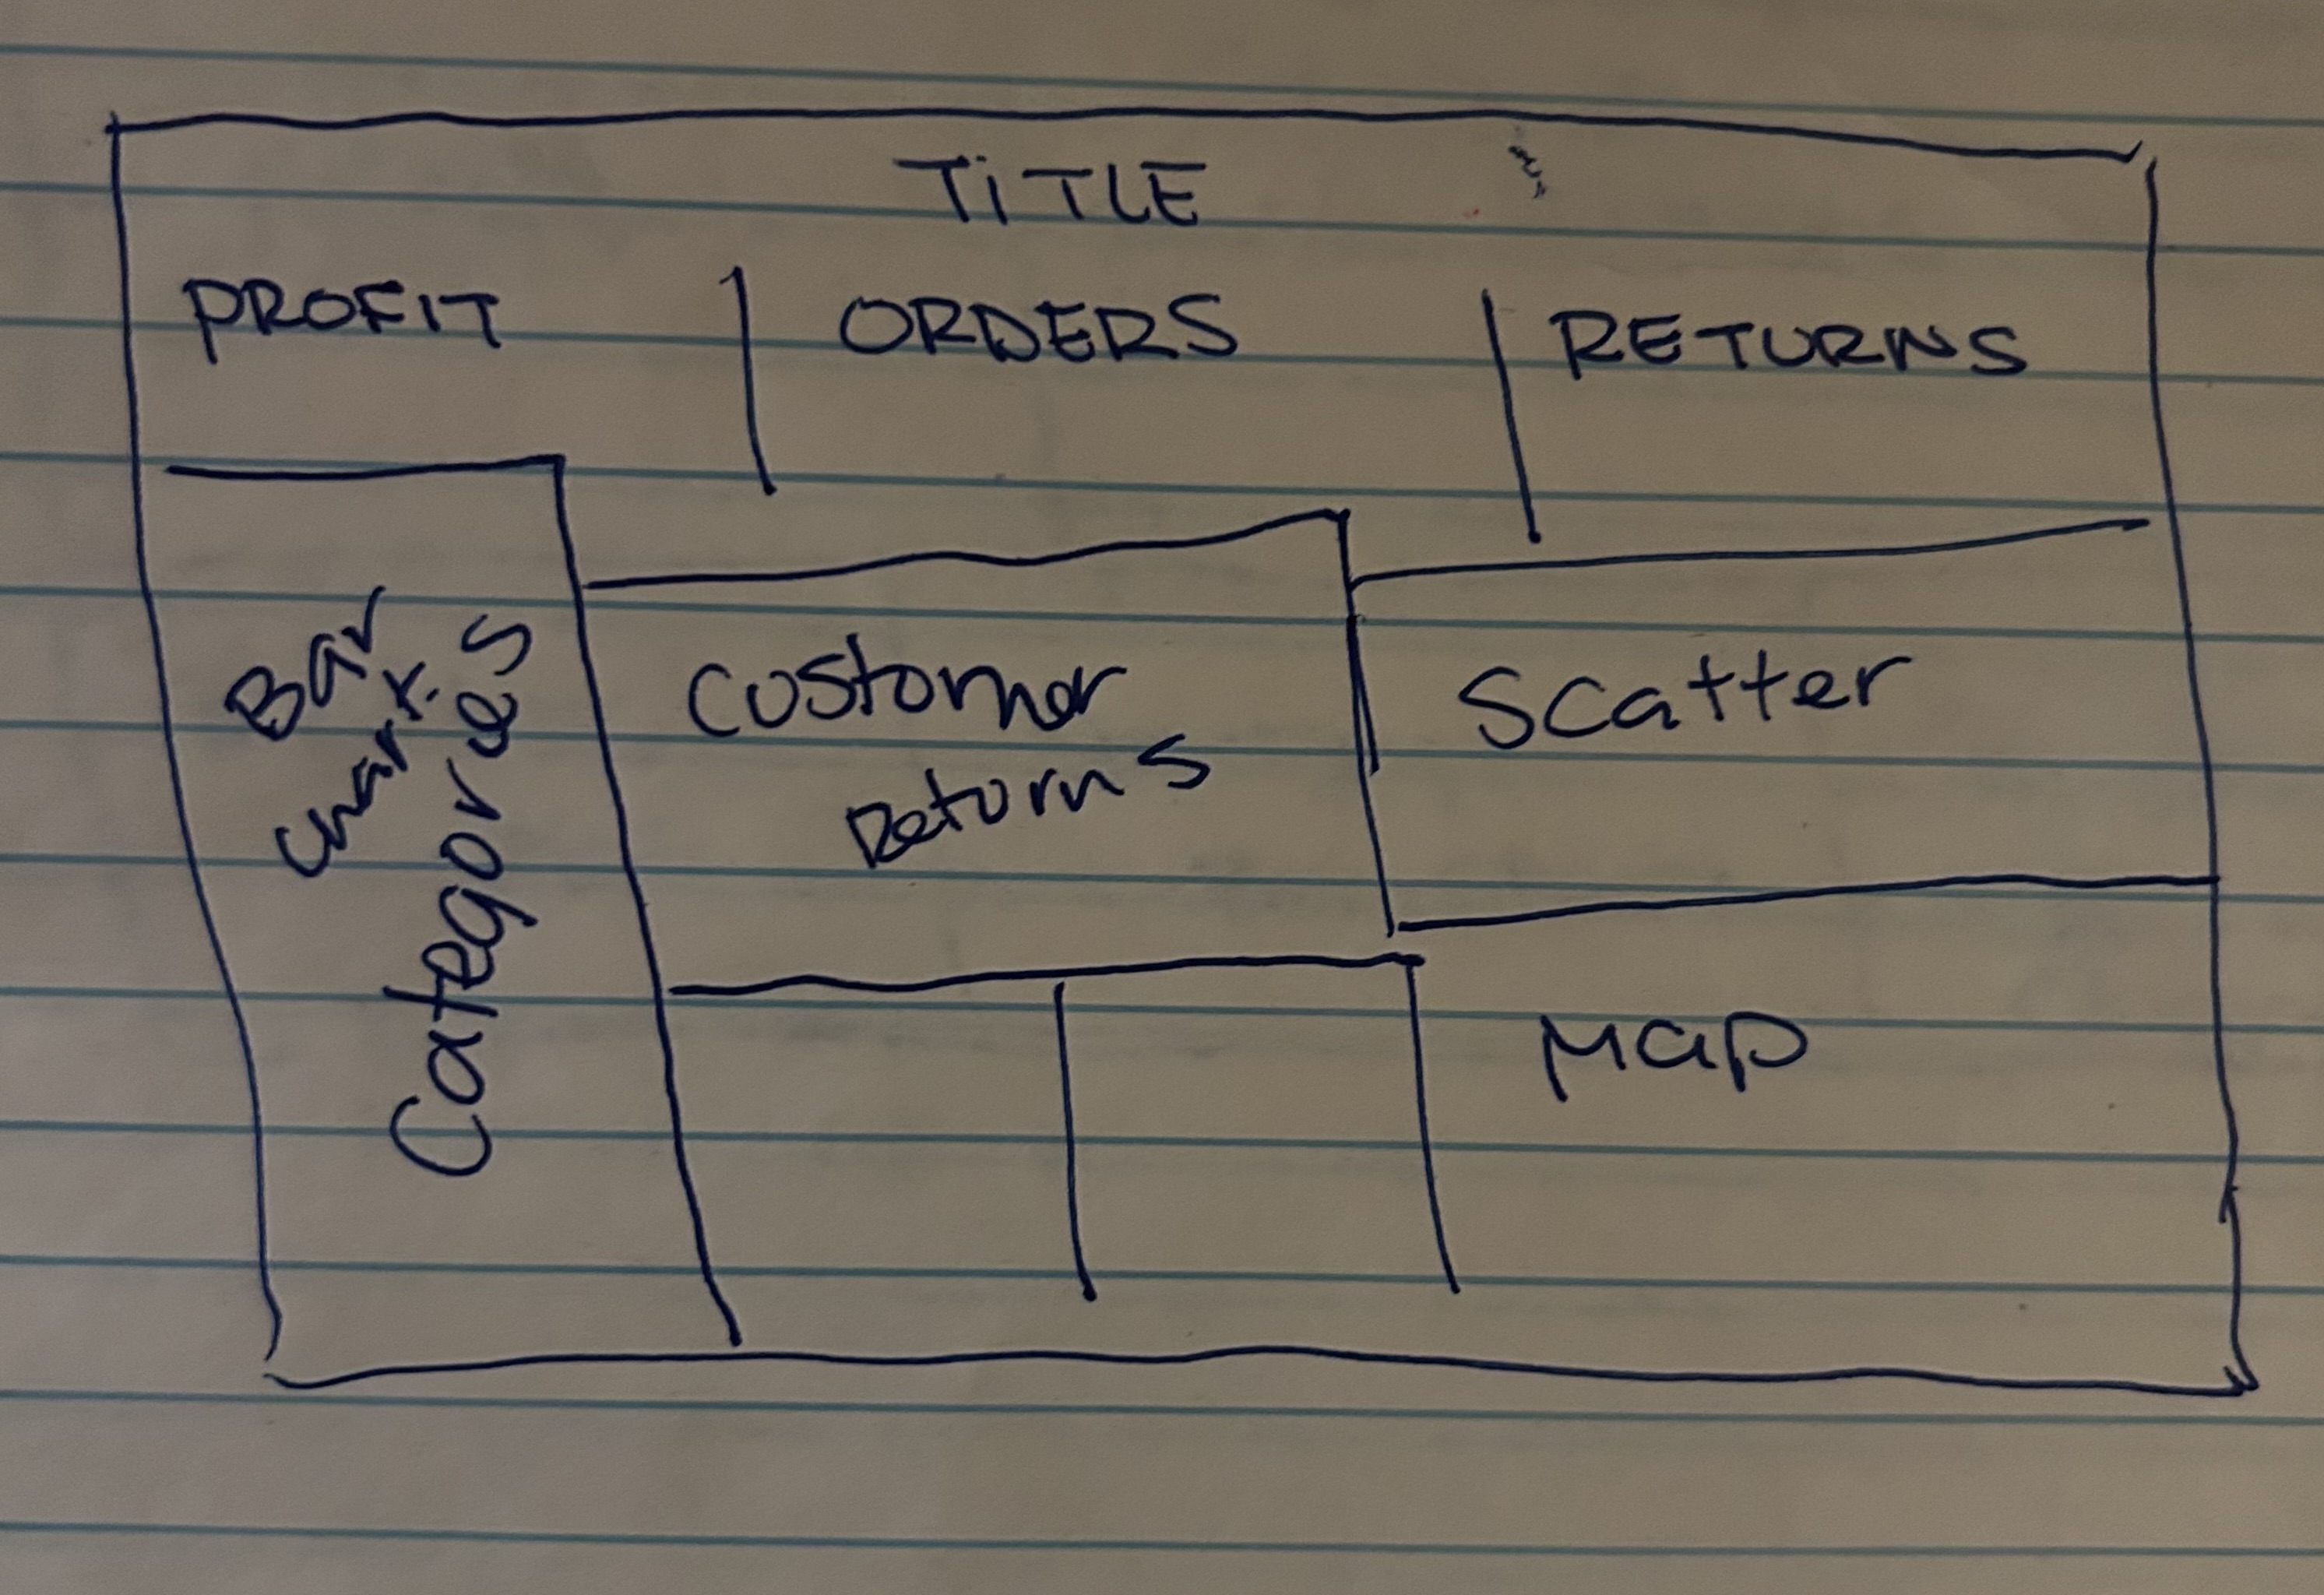 TiTLE
PROFIT
ORDERS
RETURNS
Bar
Chart
Categories
Customer
Returns
Scatter
Map